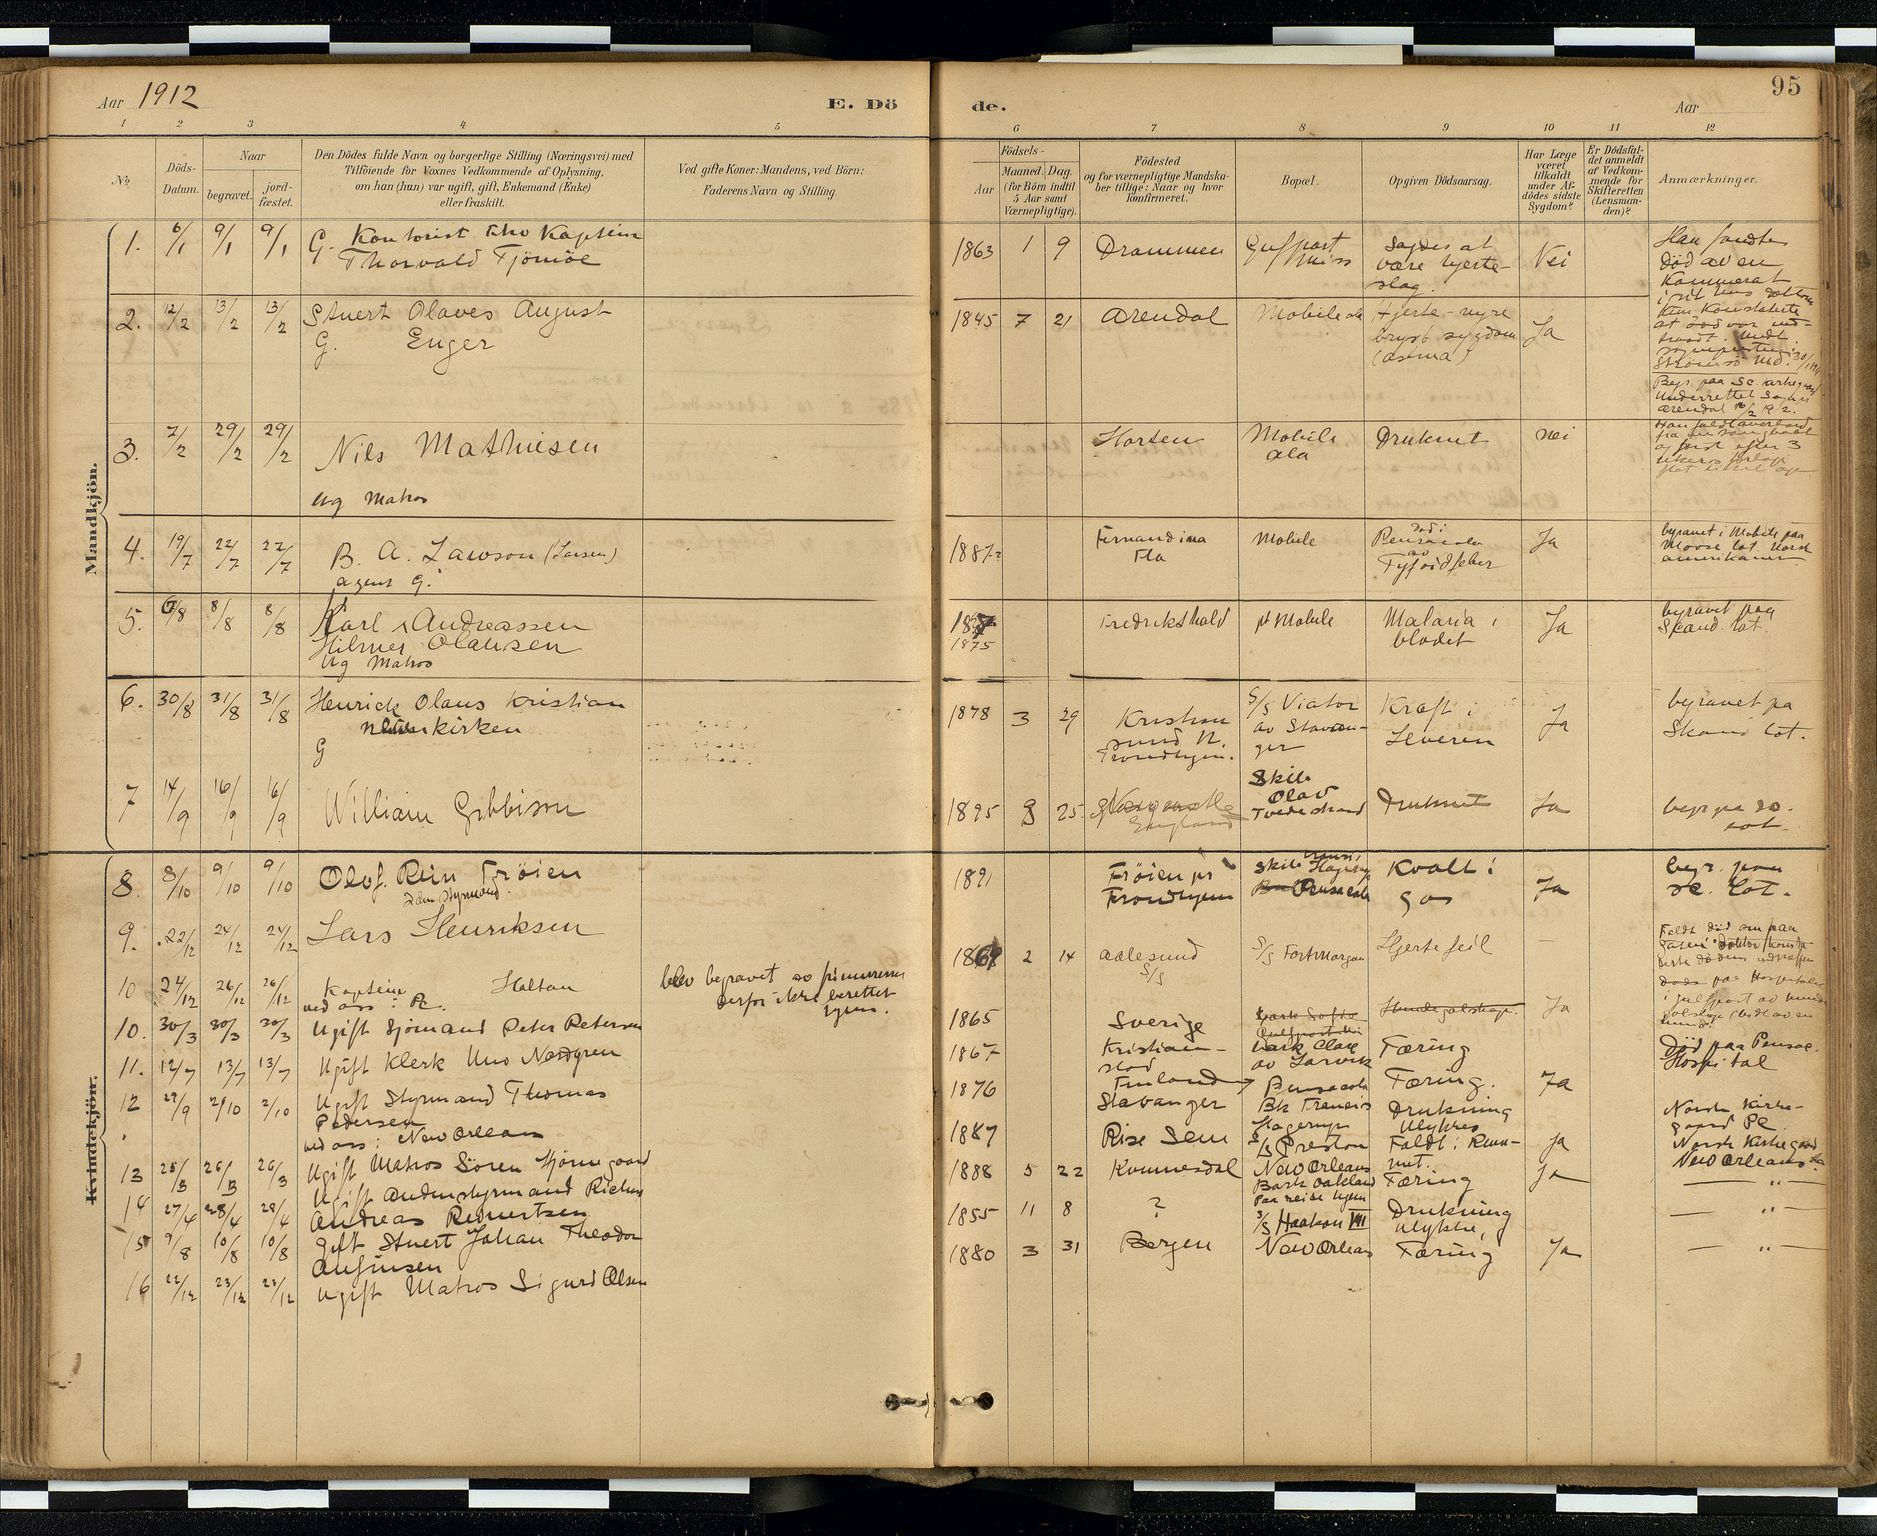 Aar 1912
E. Dö
de.
Aar
95
1 2 3 4 5 6 7 8 9 10 11 12
No.
Döds-
Datum.
Naar
begravet.
jord-
fæstet.
Den Dödes fulde Navn og borgerlige Stilling (Næringsvei) med
Tilföiende for Voxnes Vedkommende af Oplysning,
om han (hun) var ugift, gift, Enkemand (Enke)
eller fraskilt.
Ved gifte Koner: Mandens, ved Börn:
Faderens Navn og Stilling.
Födsels-
Aar
Maaned. Dag.
(for Börn indtil
5 Aar samt
Værnepligtige).
Födested
og for værnepligtige Mandska-
ber tillige: Naar og hvor
konfirmeret.
Bopæl.
Opgiven Dödsaarsag.
Har Læge
været
tilkaldt
under Af-
dödes sidste
Sygdom?
Er Dödsfal-
det anmeldt
af Vedkom-
mende for
Skifteretten
(Lensman-
den)?
Anmærkninger.
Mandkjön.
Kvindekjön.
1. 6/1 9/1 9/1 G. Kontorist Kaptein
Thorvald Tjömöe
1863 1 9 Drammen Gulfport
Miss
Sagdes at
være hjerte-
slag.
Nei
Han fandtes
död av en
Kammerat
2. 12/2 13/2 13/2 Stuert Olaves August
G. Enger
1845 7 21 Arendal Mobile ala Hjerte-nyre
bryst sygdom
(asma)
Ja
Begr. paa Sc. kirkegaard
Underrettet
Arendal
3. 7/2 29/2 29/2 Nils Mathiesen
Ug Matros
Horten Mobile
ala
Druknet nei
4. 19/7 22/7 22/7 B. A. Lawson (Larsen)
agent G.
1887? Fernandina
Fla
Mobile död i
Pensacola
av
Tyfoidfeber
Ja
begravet i Mobile paa
Moose lot. Norsk
amerikaner
5. 6/8 8/8 8/8 Karl Andreassen
Hilmer Olausen
Ug Matros
1875 Fredrikshald pt Mobile Malaria i
blodet
Ja begravet paa
Skand. lot.
6. 30/8 31/8 31/8 Henrick Olaus Kristian
kirken
G
1878 3 29 Kristian
sund N.
Trondhjem.
S/S Viator
av Stavan-
ger
Kræft i
Leveren
Ja begravet pa
Skand lot.
7 14/9 16/9 16/9 William Gibbison
1895 9 25
England
Skib
Olav
Tvedestrand
Druknet Ja begr pa sc.
lot.
8. 8/10 9/10 9/10 Olof. Rein Fröien
2den Styrmand.
1891 Fröien pr
Trondhjem
Skib
Pensacola
Kvalt i
gas
Ja begr. paa
sc. lot.
9. 22/12 24/12 24/12 Lars Henriksen
1868 2 14 Aalesund
S/S
S/S Fort Morgan Hjertefeil –
Faldt död om paa
10 24/12 26/12 26/12 Kaptein Haltan
ved ass: Pc.
blev begravet av frimurerne
derfor ikke berettet
igjen.
paa Hospitalet
10. 30/3 30/3 30/3 Ugift Sjömand Peter Petersen
1865 Sverige Bark Sofie
Gulfport Mi
Hundegalskap. Ja
11. 12/7 13/7 13/7 Ugift Klerk Uno Nordgren
1867 Kristian-
stad
Finland
Bark Clare
av Larvik
Tæring Död paa Pensac.
Hospital
12 29/9 2/10 2/10 Ugift Styrmand Thomas
Pedersen
ved ass: New Orleans
1876 Stavanger Pensacola
Bk Francis
Hagerup
Tæring.
Drukning
Ulykke
Ja Norsk kirke-
gaard Pc.
13 25/3 26/3 26/3 Ugift Matros Sören Hjörnegaard
1887 Rise Sem S/S Preston Faldt i Rum-
met. Ja Norsk kirkegaard
New Orleans La
14 27/4 28/4 28/4 Ugift Andenstyrmand Rickard
Andreas Reinertsen
1888 5 22 Kvinesdal New Orleans
Bark Oakland
Paa reise hjem
Tæring Ja — „ —
15 9/8 10/8 10/8 Gift Stuert Johan Theodor
Anfinsen
1855 11 8 ? S/S Haakon VII Drukning
ulykke, — „ —
16 22/12 23/12 23/12 Ugift Matros Sigurd Olsen
1880 3 31 Bergen New Orleans Tæring Ja — „ —